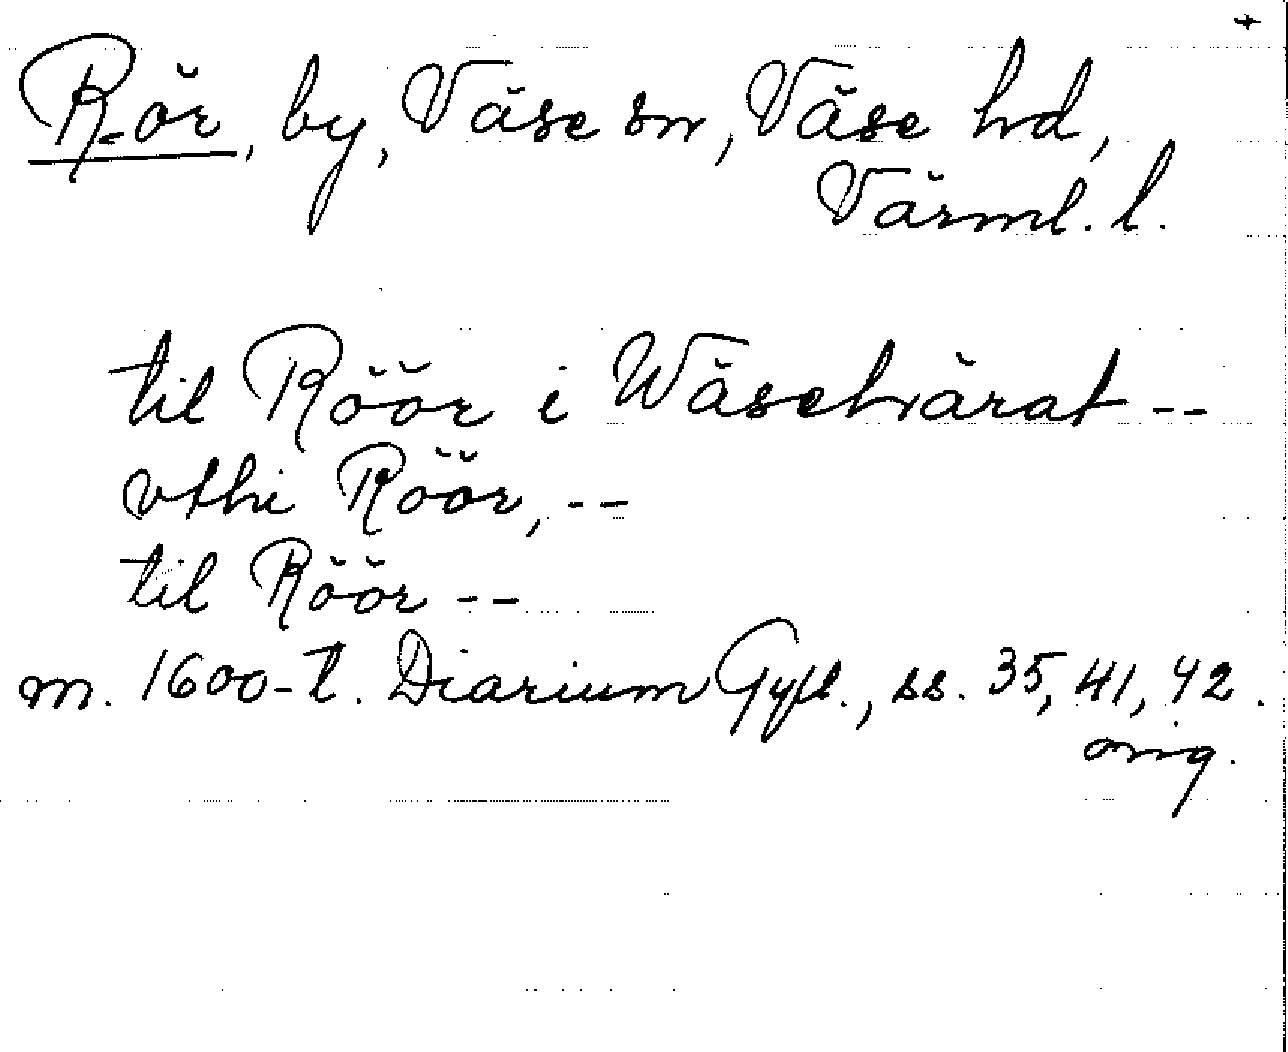 +
Rör, by, Väse sn, Väse hd,
Värml. l.
til Röör i Wäsehärat --
vthi Röör, --
til Röör --
m. 1600-t. Diarium Gyll., ss. 35, 41, 42.
orig.